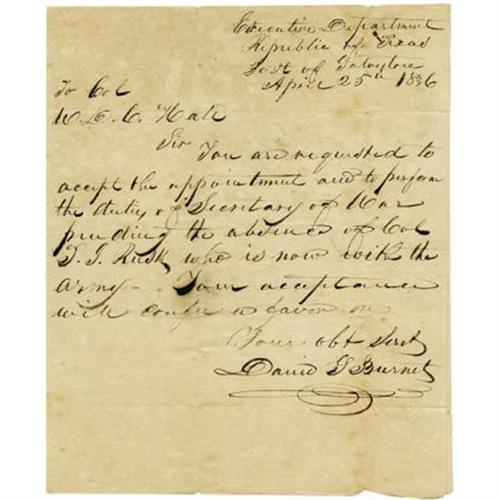 Executive Department
Republic of Texas
Port of Galveston
April 25th 1836
To Col
W. D. C. Hall
Sir
You are requested to
accept the appointment and to perform
the duties of Secretary of War
pending the absence of Col
T. J. Rusk, who is now with the
army - Your acceptance
will confer a favor on
Your obt Servt
David G Burnet